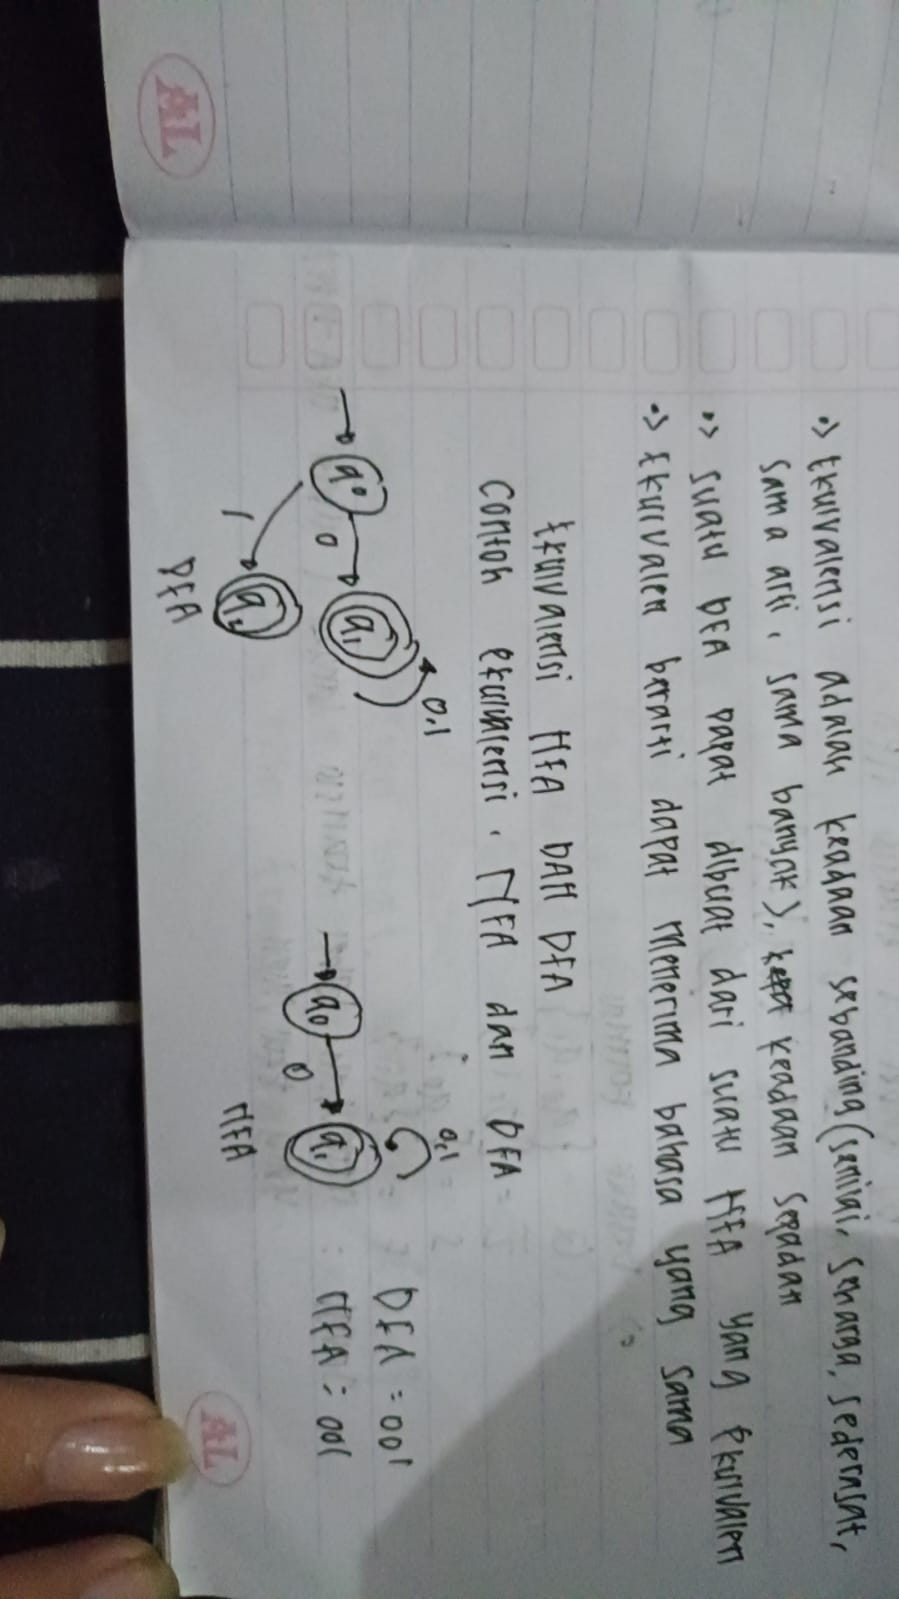 •> Ekuivalensi adalah keadaan sebanding (senilai, seharga, sederajat,
sama arti, sama banyak), keadaan sepadan
•> Suatu DFA Dapat dibuat dari suatu NFA yang Ekuivalen
•> Ekuivalen berarti dapat menerima bahasa yang sama
Ekuivalensi NFA DAN DFA
Contoh ekuivalensi, NFA dan DFA =
0.1
0.1
DFA = 001
q0
0
q1
q0
0
q1
NFA = 001
1
q2
DFA
NFA
AL
AL